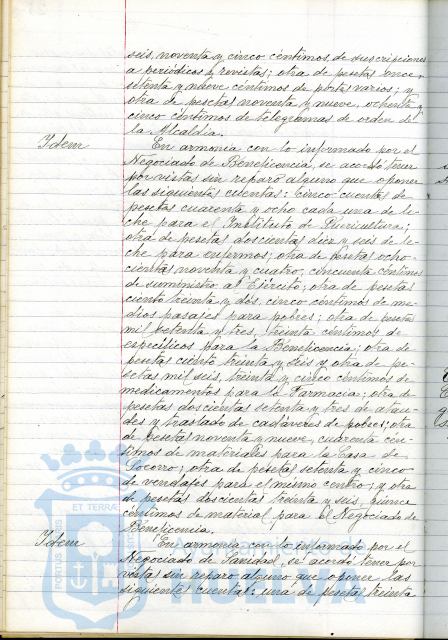 seis, noventa y cinco céntimos de suscripciones
a periódicos y revistas; otra de pesetas once,
setenta y nueve céntimos de portes varios; y
otra de pesetas noventa y nueve, ochenta y
cinco céntimos de telegramas de orden de
la Alcaldia.
Idem
En armonia con lo informado por el
Negociado de Beneficencia, se acordó tener
por vistas sin reparo alguno que oponer
las siguientes cuentas: Cinco cuentas de
pesetas cuarenta y ocho cada una de le-
che para el Instituto de Puericultura;
otra de pesetas doscientas diez y seis de le-
che para enfermos; otra de pesetas ocho-
cientas noventa y cuatro, cincuenta céntimos
de suministro al Ejército; otra de pesetas
ciento treinta y dos, cinco céntimos de me-
dios pasajes para pobres; otra de pesetas
mil setenta y tres, treinta céntimos de
específicos para la Beneficencia; otra de
pesetas ciento treinta y seis y otra de pe-
setas mil seis, treinta y cinco céntimos de
medicamentos para la Farmacia; otra de
pesetas doscientas setenta y tres de atau-
des y traslado de cadáveres de pobres; otra
de pesetas noventa y nueve, cuarenta cén-
timos de materiales para la Casa de
Socorro; otra de pesetas setenta y cinco
de vendajes para el mismo centro; y otra
de pesetas doscientas treinta y seis, quince
céntimos de material para el Negociado de
Beneficencia.
Idem
En armonia con lo informado por el
Negociado de Sanidad, se acordó tener por
vistas sin reparo alguno que oponer las
siguientes cuentas: una de pesetas treinta
PORTUS MARIS ET TERRAE
Ayuntamiento de
HUELVA